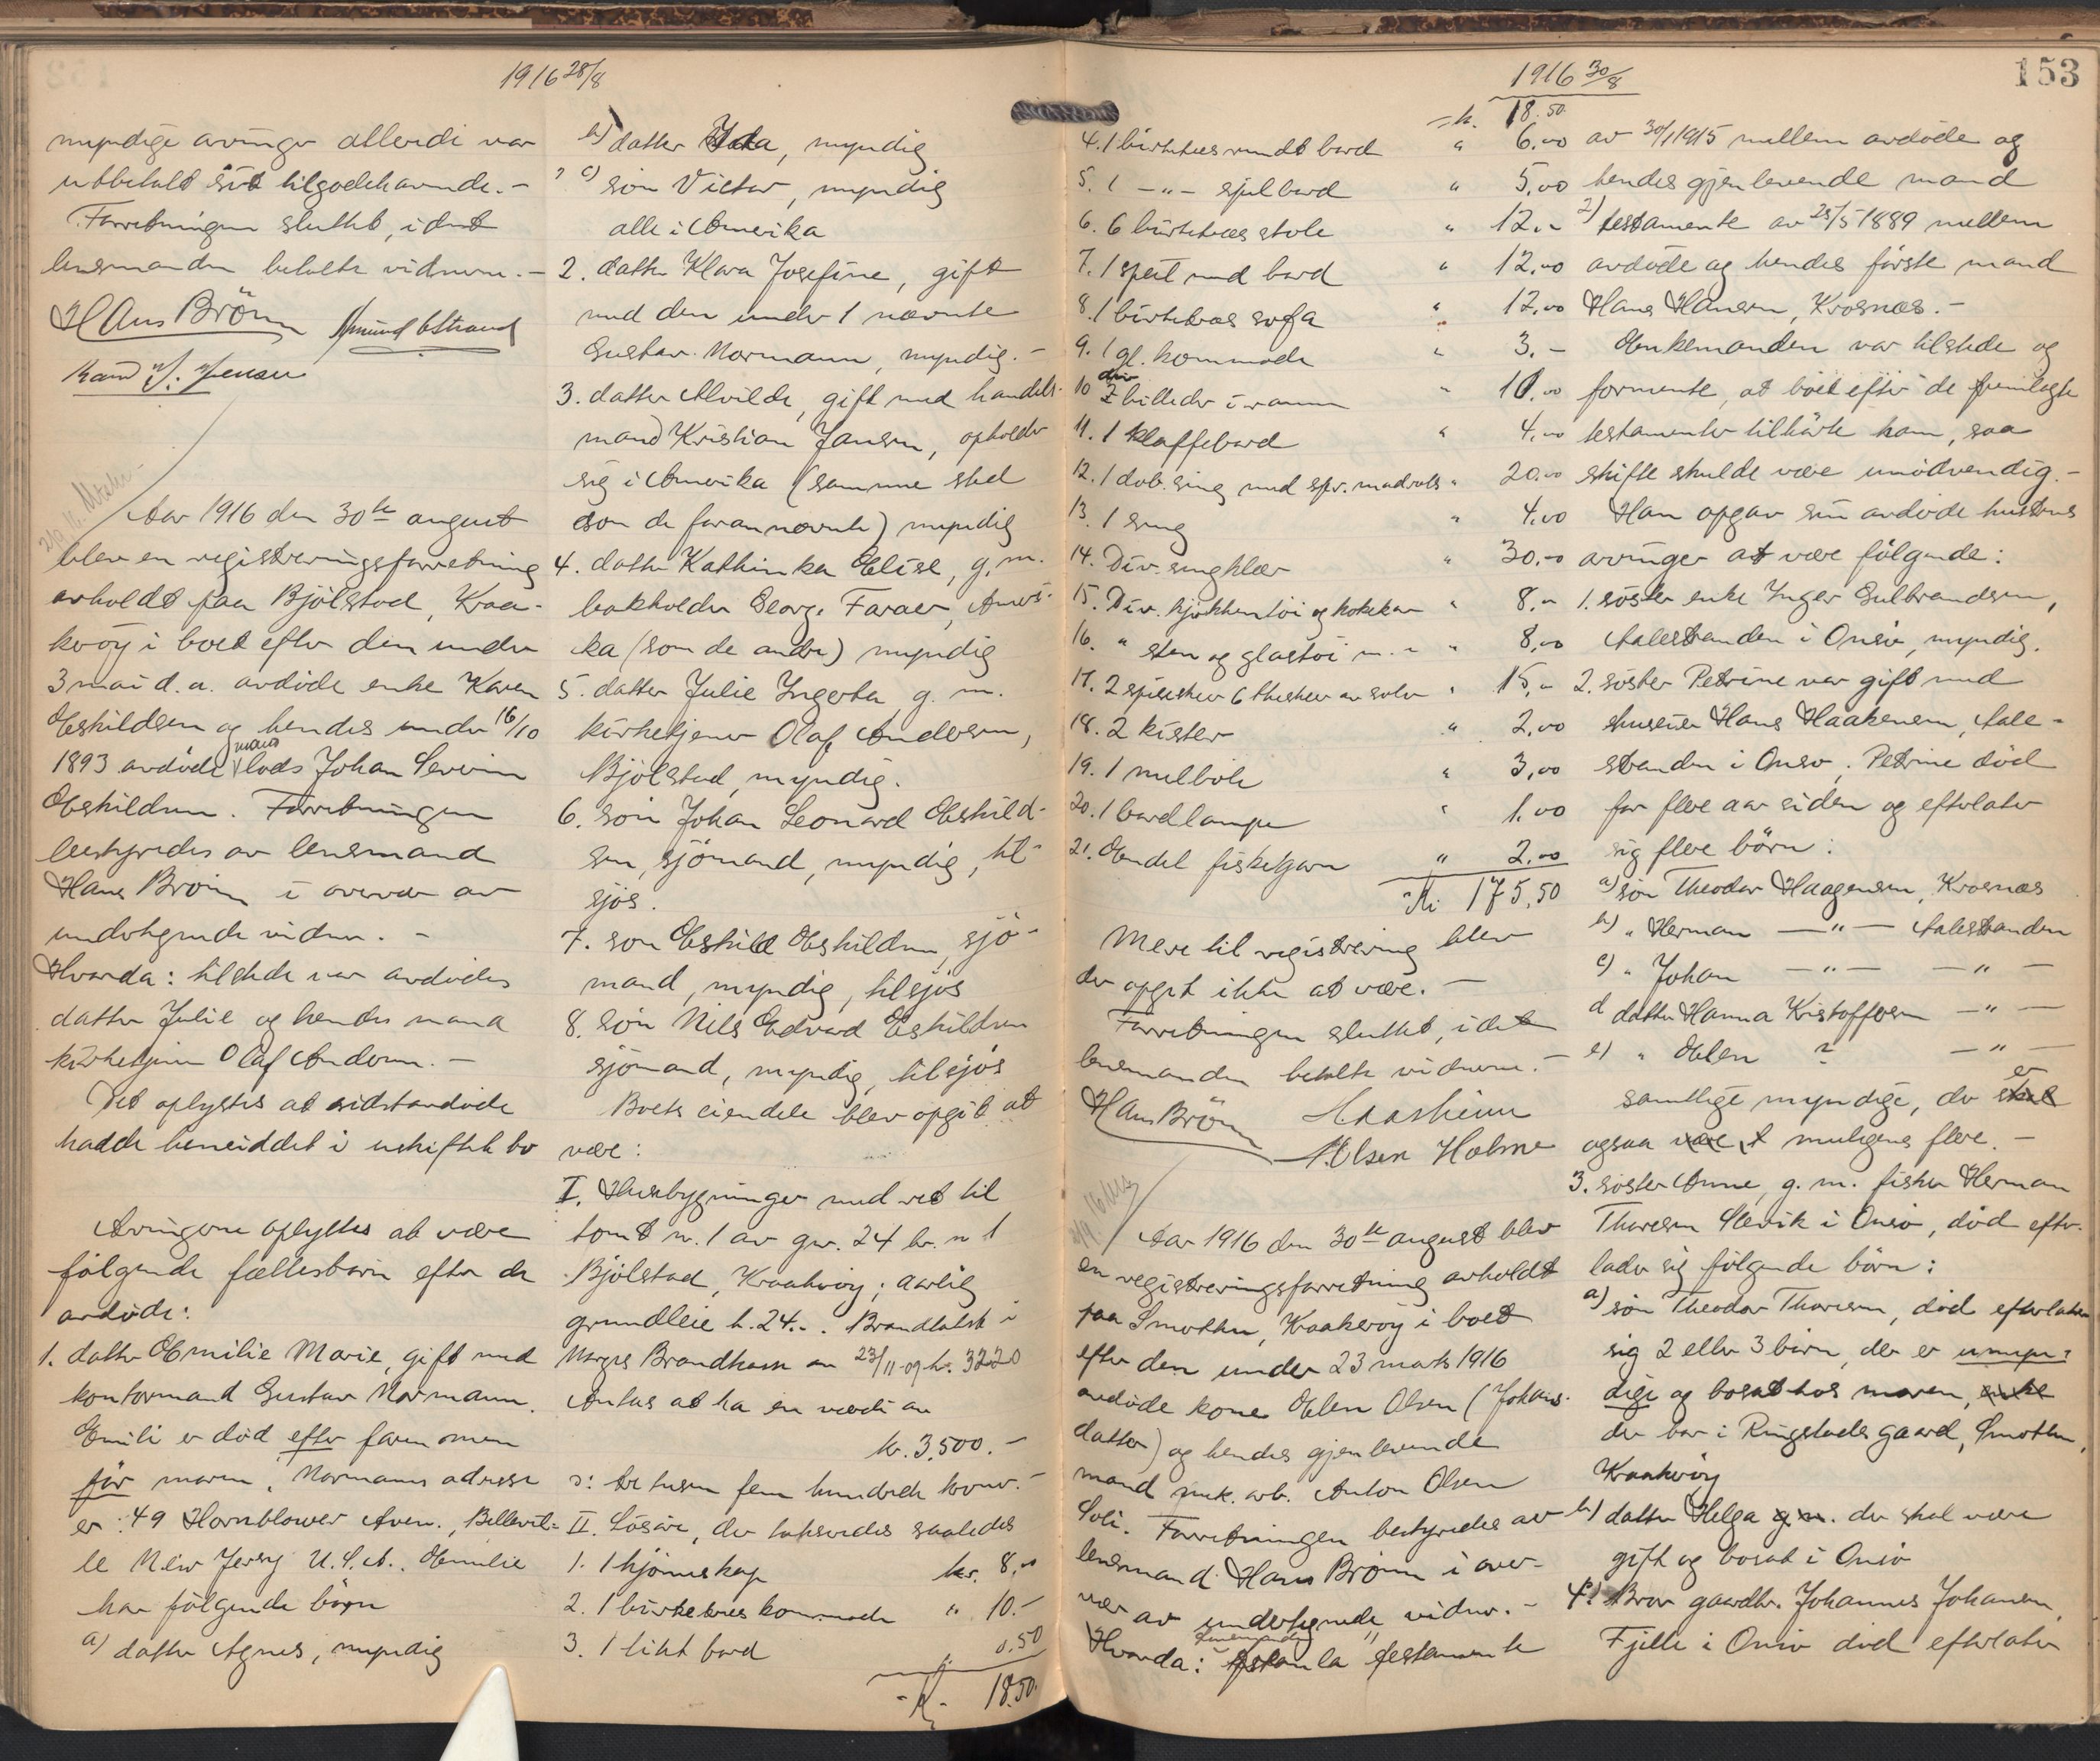 1916 28/8
myndige arvinger allerede var
utbetalt sit tilgodehavende. -
Forretningen sluttet, idet
lensmanden betalte vidnerne. -
Hans Brönn Amund Strand
Karl J. Jensen
Aar 1916 den 30te august
blev en registreringsforretning
avholdt paa Bjölstad, Kraa-
keröy i boet efter den under
3 mai d. a. avdöde enke Karen
Eskildsen og hendes under 16/10
1893 avdöde mand lods Johan Severin
Eskildsen. Forretningen
bestyredes av lensmand
Hans Brönn i overvær av
undertegnede vidner. -
Hvorda: tilstede var avdödes
datter Julie og hendes mand
kirketjener Olaf Andersen. -
Det oplystes at sidstavdöde
hadde hensiddet i uskiftet bo
Arvingerne oplystes at være
fölgende fællesbarn efter de
avdöde:
1. datter Emilie Marie, gift med
kontormand Gustav Normann.
Emilie er död efter faren men
för moren. Normanns adresse
er: 49 Hornblower Aven., Bellevil-
le New Jersey U. S. A. Emilie
har fölgende börn
a) datter Agnes, myndig
b) datter Ida, myndig
c) sön Victor, myndig
alle i Amerika
2. datter Klara Josefine, gift
med den under 1 nævnte
Gustav Normann, myndig. -
3. datter Alvilde, gift med handels-
mand Kristian Jansen, opholder
sig i Amerika (samme sted
som de forannævnte) myndig
4. datter Kathinka Elise, g. m.
bokholder George Faraer, Ameri-
ka (som de andre) myndig
5. datter Julie Ingerta, g. m.
kirketjener Olaf Andersen,
Bjölstad, myndig.
6. sön Johan Leonard Eskild-
sen, sjömand, myndig, til
sjös.
7. sön Eskild Eskildsen, sjö-
mand, myndig, tilsjös
8. sön Nils Edvard Eskildsen
sjömand, myndig, tilsjös
Boets eiendele blev opgit at
være:
I. Husbygninger med ret til
tomt n. 1 av gr. 24 br. n 1
Bjölstad, Kraakeröy; aarlig
grundleie k. 24.-. Brandtakst i
Norges Brandkasse av 23/11-09 kr. 3220
Antas at ha en værdi av
kr. 3,500. -
ɔ: tre tusen fem hundrede kroner. -
II. Lösöre, der taksertes saaledes
1. 1 hjörneskap kr. 8,00
2. 1 birketræs kommode " 10.-
3. 1 litet bord " 0.50
Kr. 18.50.
1916 30/8
153
kr. 18.50
4. 1 birketræs rundt bord " 6.00
5. 1 -"- spilbord " 5,00
6. 6 birketræs stole " 12.-
7. 1 speil med bord " 12.00
8. 1 birketræs sofa " 12.00
9. 1 gl. kommode " 3.-
10 div billeder i ramme " 10.00
11. 1 klaffebord " 4.00
12. 1 dob. seng med spr. madrats " 20.00
13. 1 seng " 4.00
14. Div. sengklær " 30.-
15. Div. kjökkentöi og kokekar " 8.-
16. " sten og glastöi m. v " 8,00
17. 2 spiseskeer 6 theskeer av sölv " 15,-
18. 2 kister " 2.00
19. 1 melböle " 3,00
20. 1 bordlampe " 1.00
21. Endel fiskegarn " 2.00
Kr 175,50
Mere til registrering blev
der opgit ikke at være. -
Forretningen sluttet, idet
lensmanden betalte vidnerne. -
Hans Brönn Aasheim
A. Olsen Holme
Aar 1916 den 30te august blev
en registreringsforretning avholdt
paa Smotten, Kraakeröy i boet
efter den under 23 marts 1916
avdöde kone Elen Olsen (Johans-
datter) og hendes gjenlevende
mand mek. arb. Anton Olsen
Soli. Forretningen bestyredes av
lensmand Hans Brönn i over-
vær av undertegnede vidner. -
Hvorda: testamente
av 30/1 1915 mellem avdöde og
hendes gjenlevende mand
2) testamente av 28/5 1889 mellem
avdöde og hendes förste mand
Hans Hansen, Krosnæs. -
Enkemanden var tilstede og
formente, at boet efter de fremlagte
testamenter tilhörte ham, saa
skifte skulde være unödvendig. -
Han opgav sin avdöde hustrus
arvinger at være fölgende:
1. söster enke Inger Gulbrandsen,
Aalestranden i Onsö, myndig.
2. söster Petrine var gift med
huseier Hans Haakensen, Aale-
stranden i Onsö. Petrine död
for flere aar siden og efterlater
sig flere börn:
a) sön Theodor Haagensen, Krosnæs
b) " Herman -"- Aalestranden
c) " Johan -"- -"-
d datter Hanna Kristoffersen -"-
e) " Elen ? -"-
samtlige myndige, der skal er
ogsaa være t muligens flere. -
3. söster Anne, g. m. fisker Herman
Thoresen Slevik i Onsö, död efter-
lader sig fölgende börn:
a) sön Theodor Thoresen, död efterlater
sig 2 eller 3 börn, der er umyn-
dige og bosat hos moren, enke
der bor i Ringstadsgaard, Smotten,
Kraakeröy
b) datter Helga g. m. der skal være
gift og bosat i Onsö
4) Bror gaardbr. Johannes Johansen,
Fjelle i Onsö död efterlater